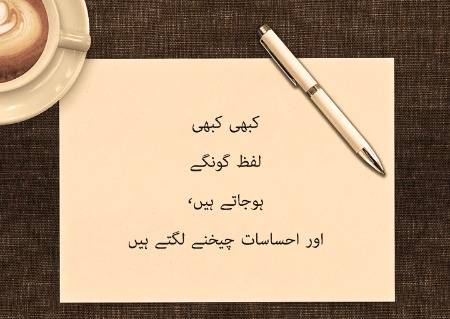 کبھی کبھی
لفظ گونگے
ہوجاتے ہیں،
اور احساسات چیخنے لگتے ہیں